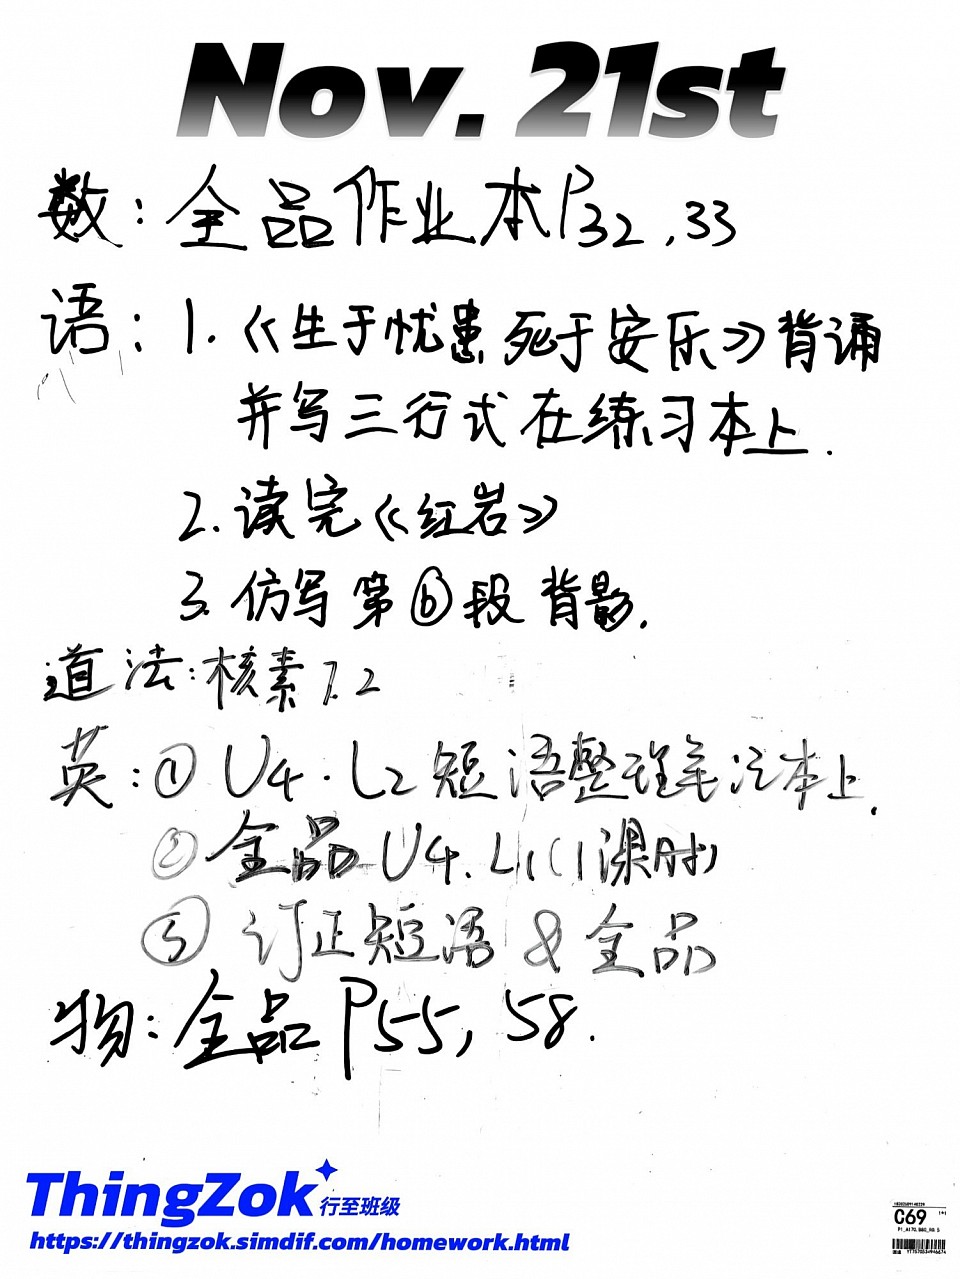 Nov. 21st
数：全品作业本P32,33
语：1.《生于忧患死于安乐》背诵
并写三行式在练习本上.
2.读完《红岩》
3.仿写第⑥段背影.
道法：核素7.2
英：①U4.L2短语整理笔记本上.
②全品U4.L1(1课时)
③订正短语&全品
物：全品P55,58.
ThingZok 行至班级
https://thingzok.simdif.com/homework.html
C69